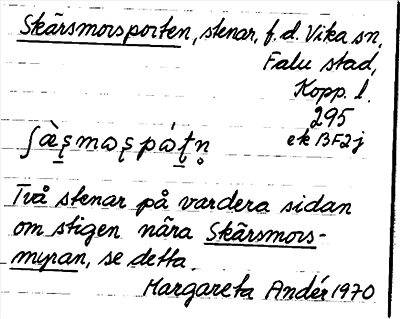 Skärsmorsporten, stenar, f.d. Vika sn,
Falu stad,
Kopp. l.
295
ek 13F2j
Två stenar på vardera sidan
om stigen nära Skärsmors-
myran, se detta.
Margareta Andér 1970